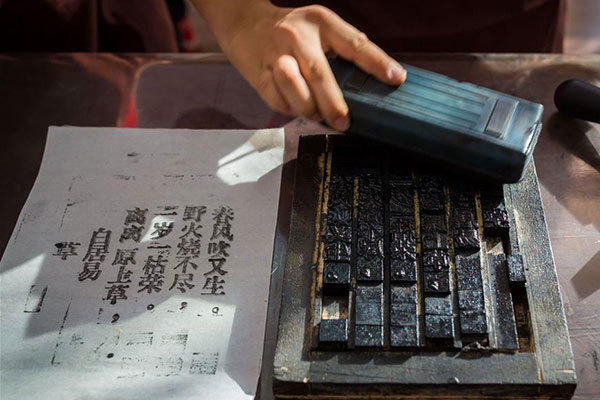 草
白居易
离离原上草。
一岁一枯荣。
野火烧不尽，
春风吹又生。